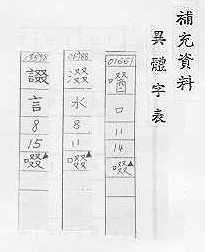 補充資料
異體字表
01661
口
11
14
啜▲
涰
水
8
11
啜▲
諁
言
8
15
啜▲